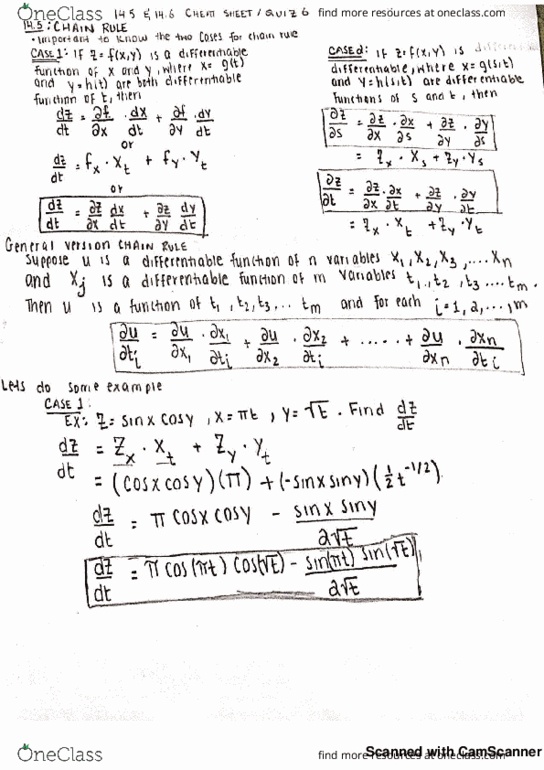 OneClass
14.5 & 14.6 CHEAT SHEET / QUIZ 6
find more resources at oneclass.com
14.5: CHAIN RULE
• Important to know the two cases for chain rule
CASE 1: IF Z = f(x,y) is a differentiable
function of x and y, where x = g(t)
and y = h(t) are both differentiable
function of t, then
dz/dt = ∂f/∂x · dx/dt + ∂f/∂y · dy/dt
or
dz/dt = fx · xt + fy · yt
or
dz/dt = ∂z/∂x dx/dt + ∂z/∂y dy/dt
CASE 2: IF Z = f(x,y) is differentiable
differentiable, where x = g(s,t)
and y = h(s,t) are differentiable
functions of s and t, then
∂z/∂s = ∂z/∂x · ∂x/∂s + ∂z/∂y · ∂y/∂s
= Zx · Xs + Zy · Ys
∂z/∂t = ∂z/∂x · ∂x/∂t + ∂z/∂y · ∂y/∂t
= Zx · Xt + Zy · Yt
General version CHAIN RULE
Suppose u is a differentiable function of n variables x1, x2, x3, .... xn
and xj is a differentiable function of m variables t1, t2, t3 ... tm.
Then u is a function of t1, t2, t3 ... tm and for each i = 1, 2, ..., m
∂u/∂ti = ∂u/∂x1 · ∂x1/∂ti + ∂u/∂x2 · ∂x2/∂ti + ..... + ∂u/∂xn · ∂xn/∂ti
Lets do some example
CASE 1:
EX: Z = sinx cosy, x = πt, y = √t. Find dz/dt
dz/dt = Zx · Xt + Zy · Yt
= (cosx cosy)(π) + (-sinx siny)(1/2 t^-1/2)
dz/dt = π cosx cosy - sinx siny / 2√t
dz/dt = π cos(πt) cos(√t) - sin(πt) sin(√t) / 2√t
OneClass
find more resources at oneclass.com
Scanned with CamScanner